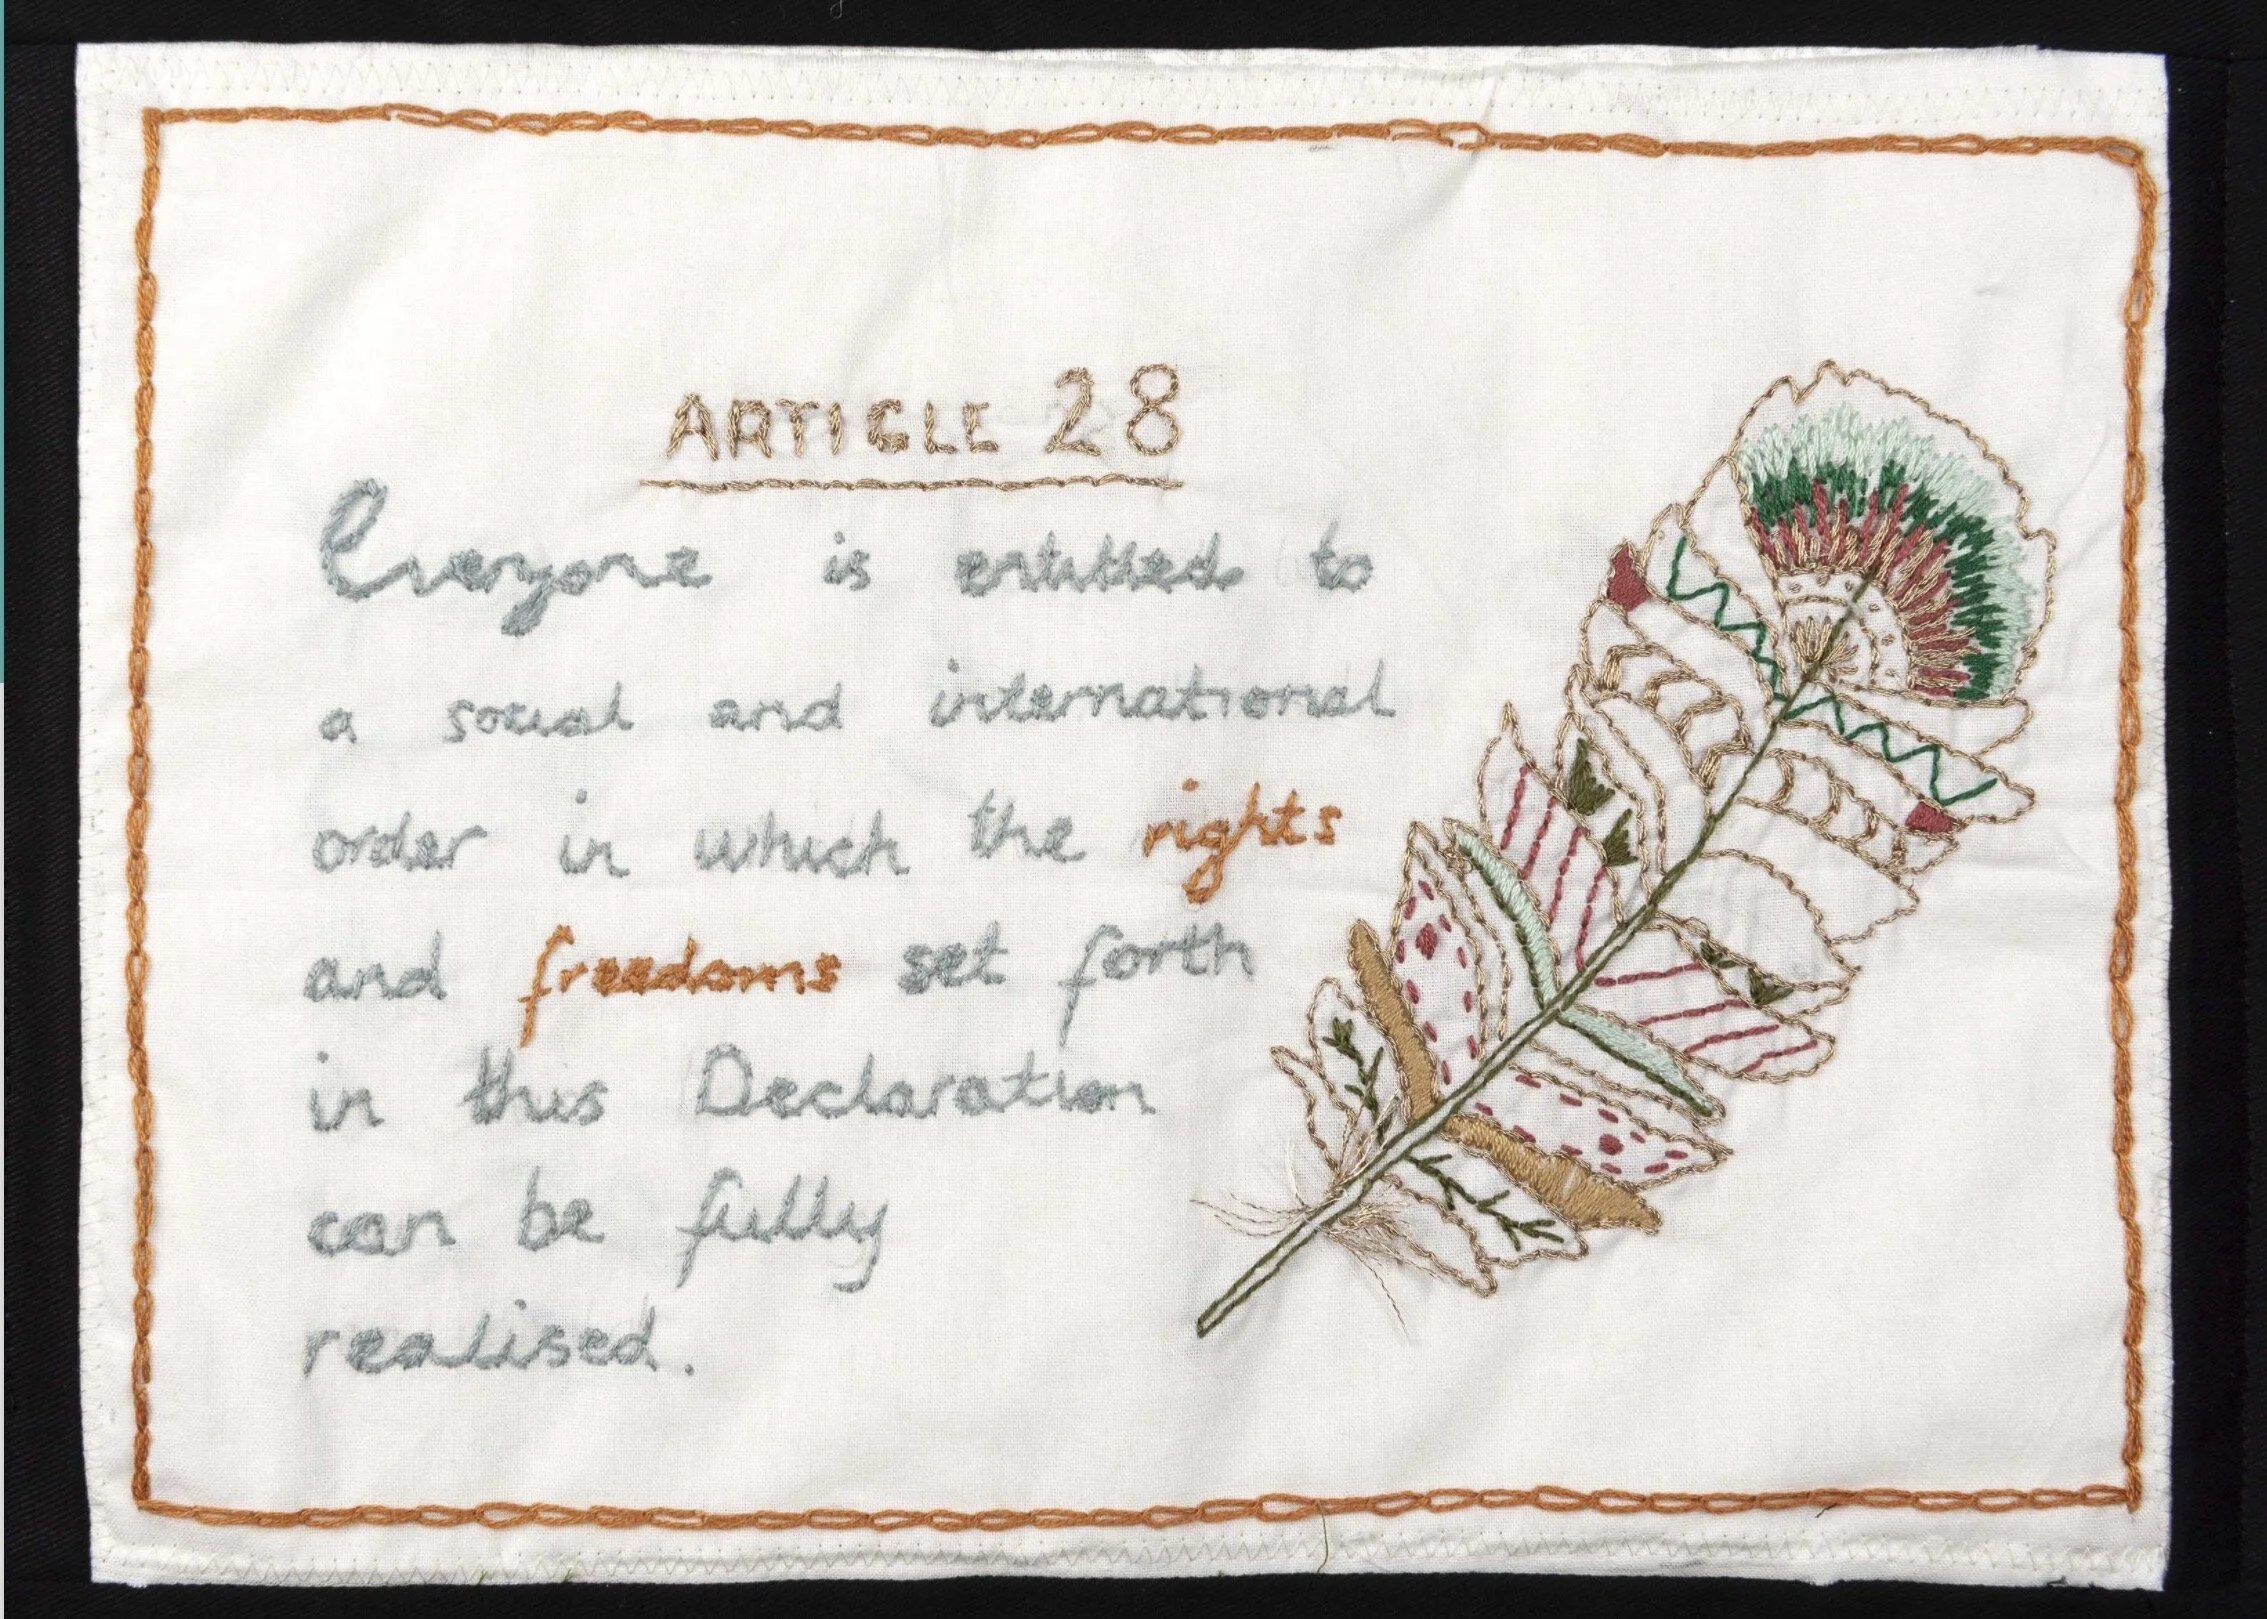 ARTICLE 28
Everyone is entitled to
a social and international
order in which the rights
and freedoms set forth
in this Declaration
can be fully
realised.